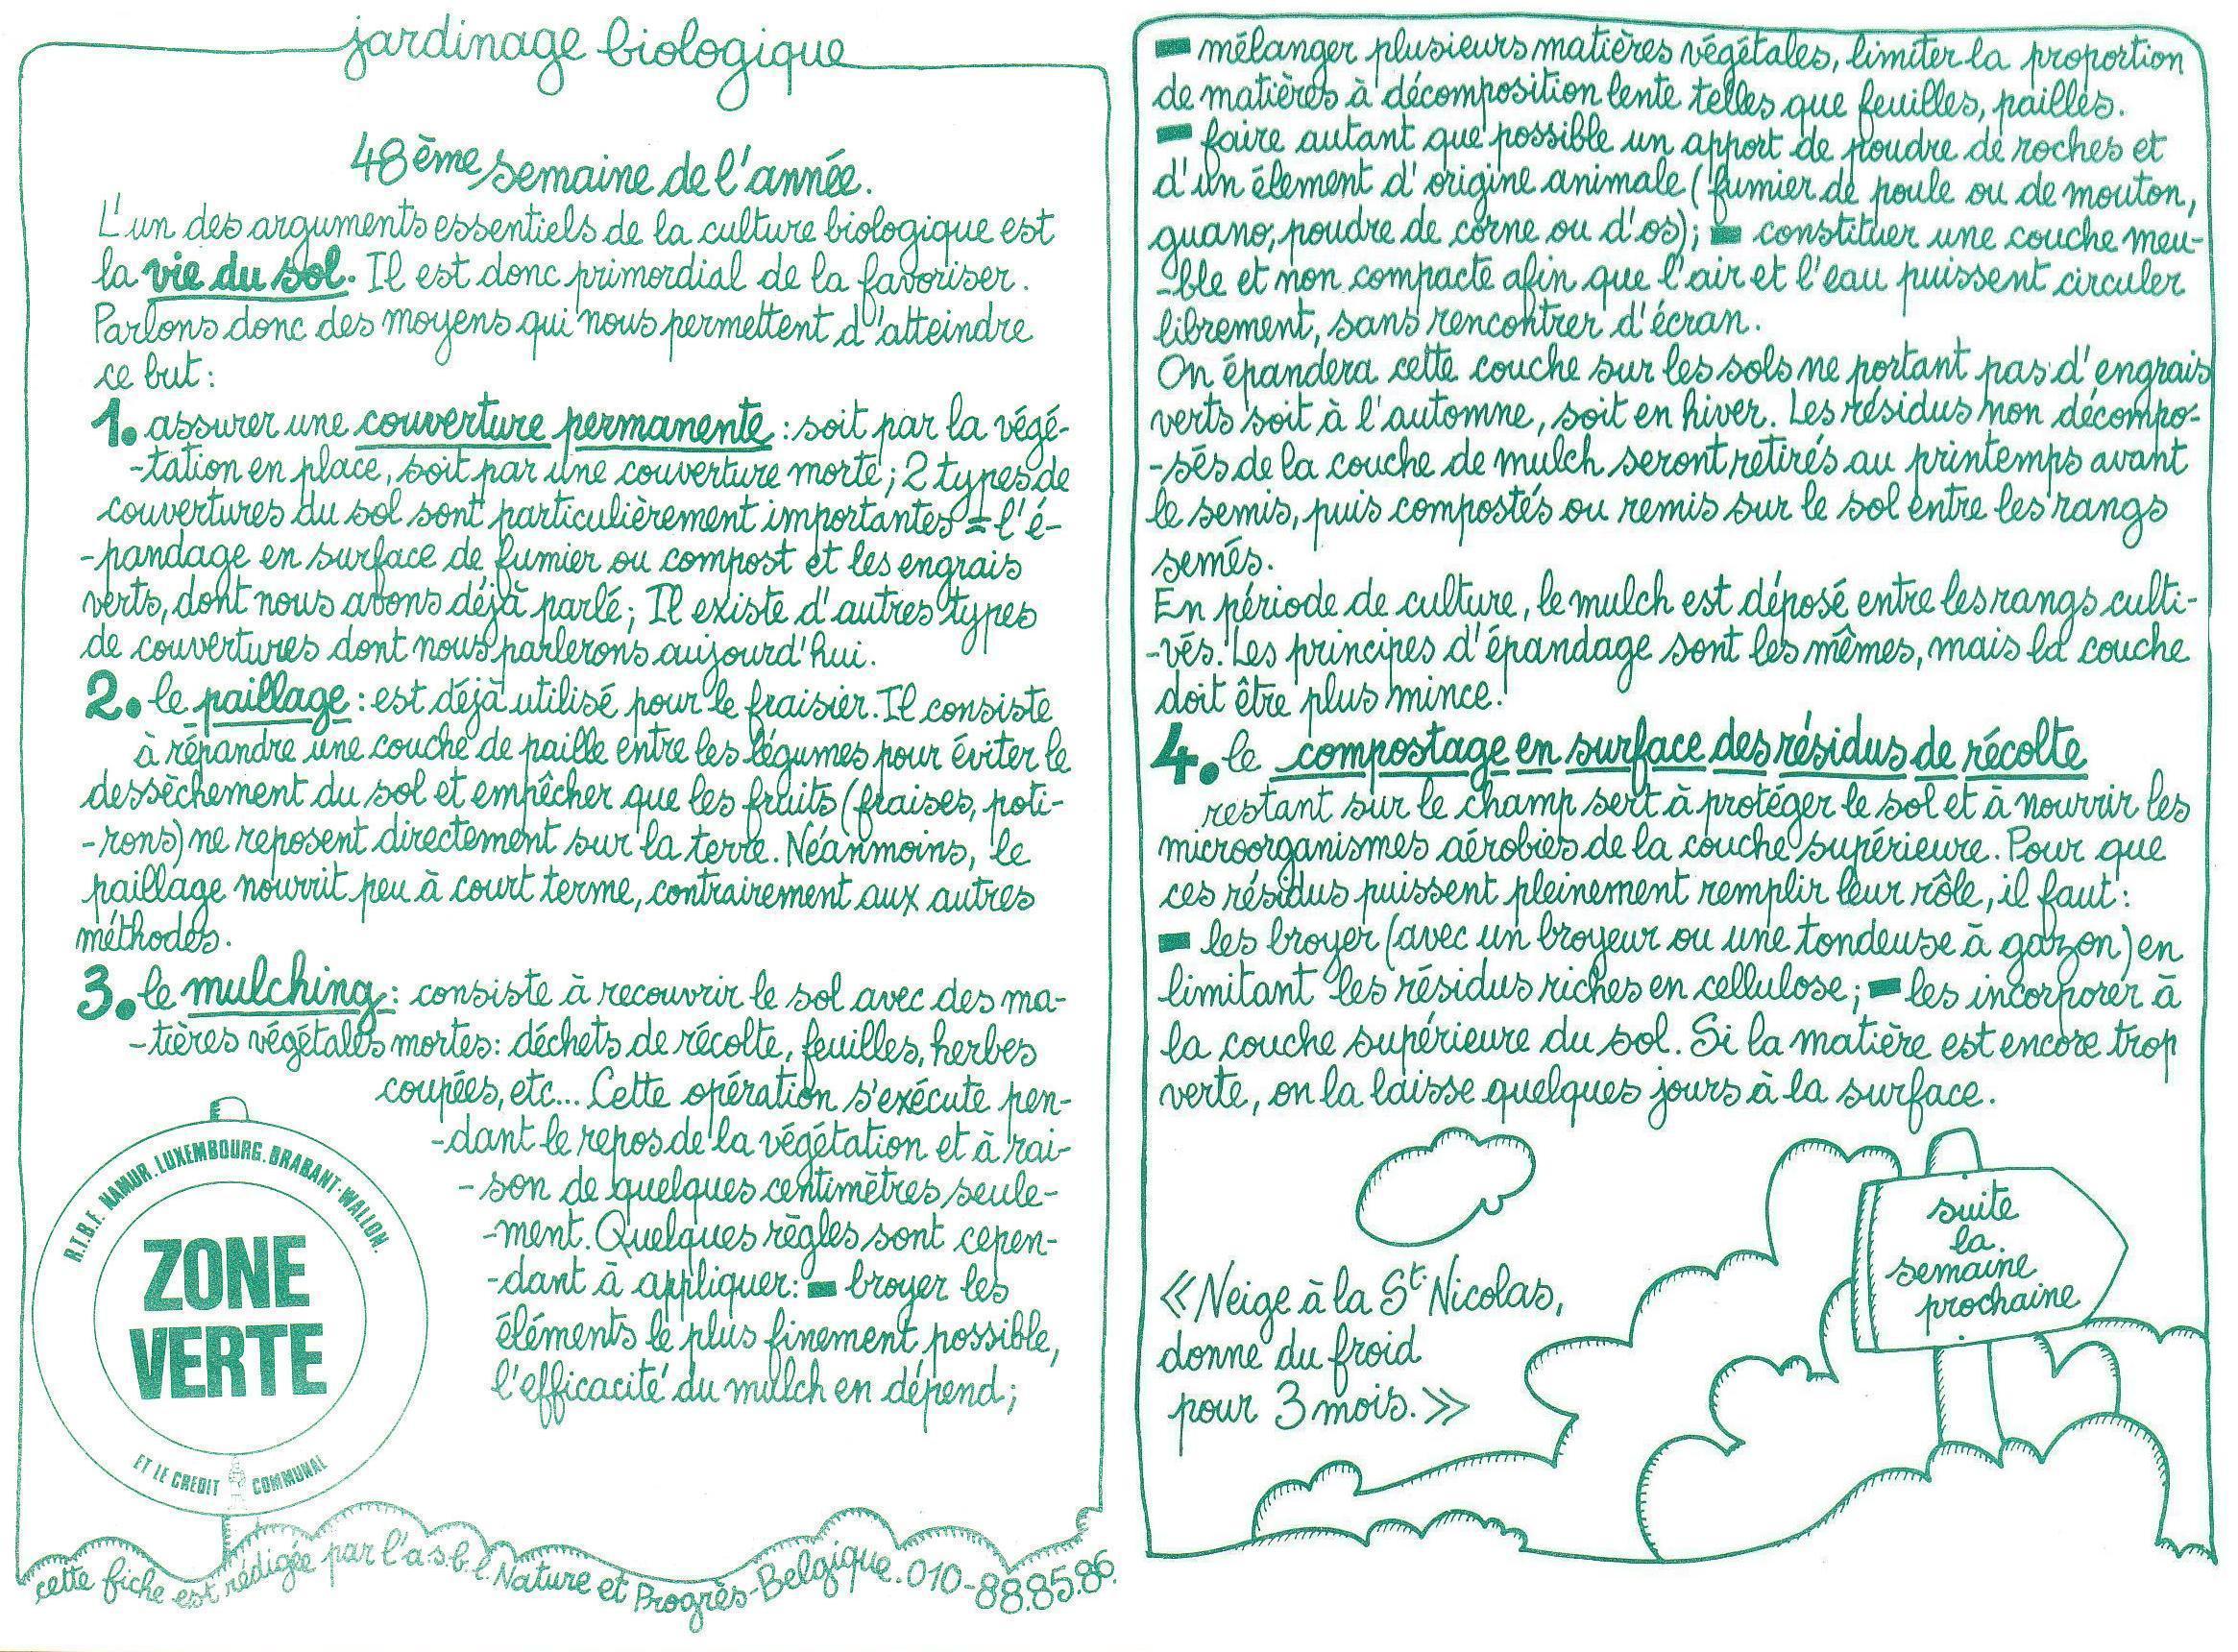 jardinage biologique
48ème semaine de l'année.
L'un des arguments essentiels de la culture biologique est
la vie du sol. Il est donc primordial de la favoriser.
Parlons donc des moyens qui nous permettent d'atteindre
ce but :
1. assurer une couverture permanente : soit par la végé-
-tation en place, soit par une couverture morte ; 2 types de
couvertures du sol sont particulièrement importantes = l'é-
-pandage en surface de fumier ou compost et les engrais
verts, dont nous avons déjà parlé ; Il existe d'autres types
de couvertures dont nous parlerons aujourd'hui.
2. le paillage : est déjà utilisé pour le fraisier. Il consiste
à répandre une couche de paille entre les légumes pour éviter le
dessèchement du sol et empêcher que les fruits (fraises, poti-
-rons) ne reposent directement sur la terre. Néanmoins, le
paillage nourrit peu à court terme, contrairement aux autres
méthodes.
3. le mulching : consiste à recouvrir le sol avec des ma-
-tières végétales mortes : déchets de récolte, feuilles, herbes
coupées, etc... Cette opération s'exécute pen-
-dant le repos de la végétation et à rai-
-son de quelques centimètres seule-
-ment. Quelques règles sont cepen-
-dant à appliquer : - broyer les
éléments le plus finement possible,
l'efficacité du mulch en dépend ;
R.T.B.F. NAMUR. LUXEMBOURG. BRABANT-WALLON.
ZONE
VERTE
ET LE CREDIT COMMUNAL
cette fiche est rédigée par l'a.s.b.l. Nature et Progrès-Belgique. 010-88.85.86.
- mélanger plusieurs matières végétales, limiter la proportion
de matières à décomposition lente telles que feuilles, pailles.
- faire autant que possible un apport de poudre de roches et
d'un élement d'origine animale (fumier de poule ou de mouton,
guano, poudre de corne ou d'os) ; - constituer une couche meu-
-ble et non compacte afin que l'air et l'eau puissent circuler
librement, sans rencontrer d'écran.
On épandera cette couche sur les sols ne portant pas d'engrais
verts soit à l'automne, soit en hiver. Les résidus non décompo-
-sés de la couche de mulch seront retirés au printemps avant
le semis, puis compostés ou remis sur le sol entre les rangs
semés.
En période de culture, le mulch est déposé entre les rangs culti-
-vés. Les principes d'épandage sont les mêmes, mais la couche
doit être plus mince.
4. le compostage en surface des résidus de récolte
restant sur le champ sert à protéger le sol et à nourrir les
microorganismes aérobies de la couche supérieure. Pour que
ces résidus puissent pleinement remplir leur rôle, il faut :
- les broyer (avec un broyeur ou une tondeuse à gazon) en
limitant les résidus riches en cellulose ; - les incorporer à
la couche supérieure du sol. Si la matière est encore trop
verte, on la laisse quelques jours à la surface.
«Neige à la St. Nicolas,
donne du froid
pour 3 mois.»
suite
la
semaine
prochaine